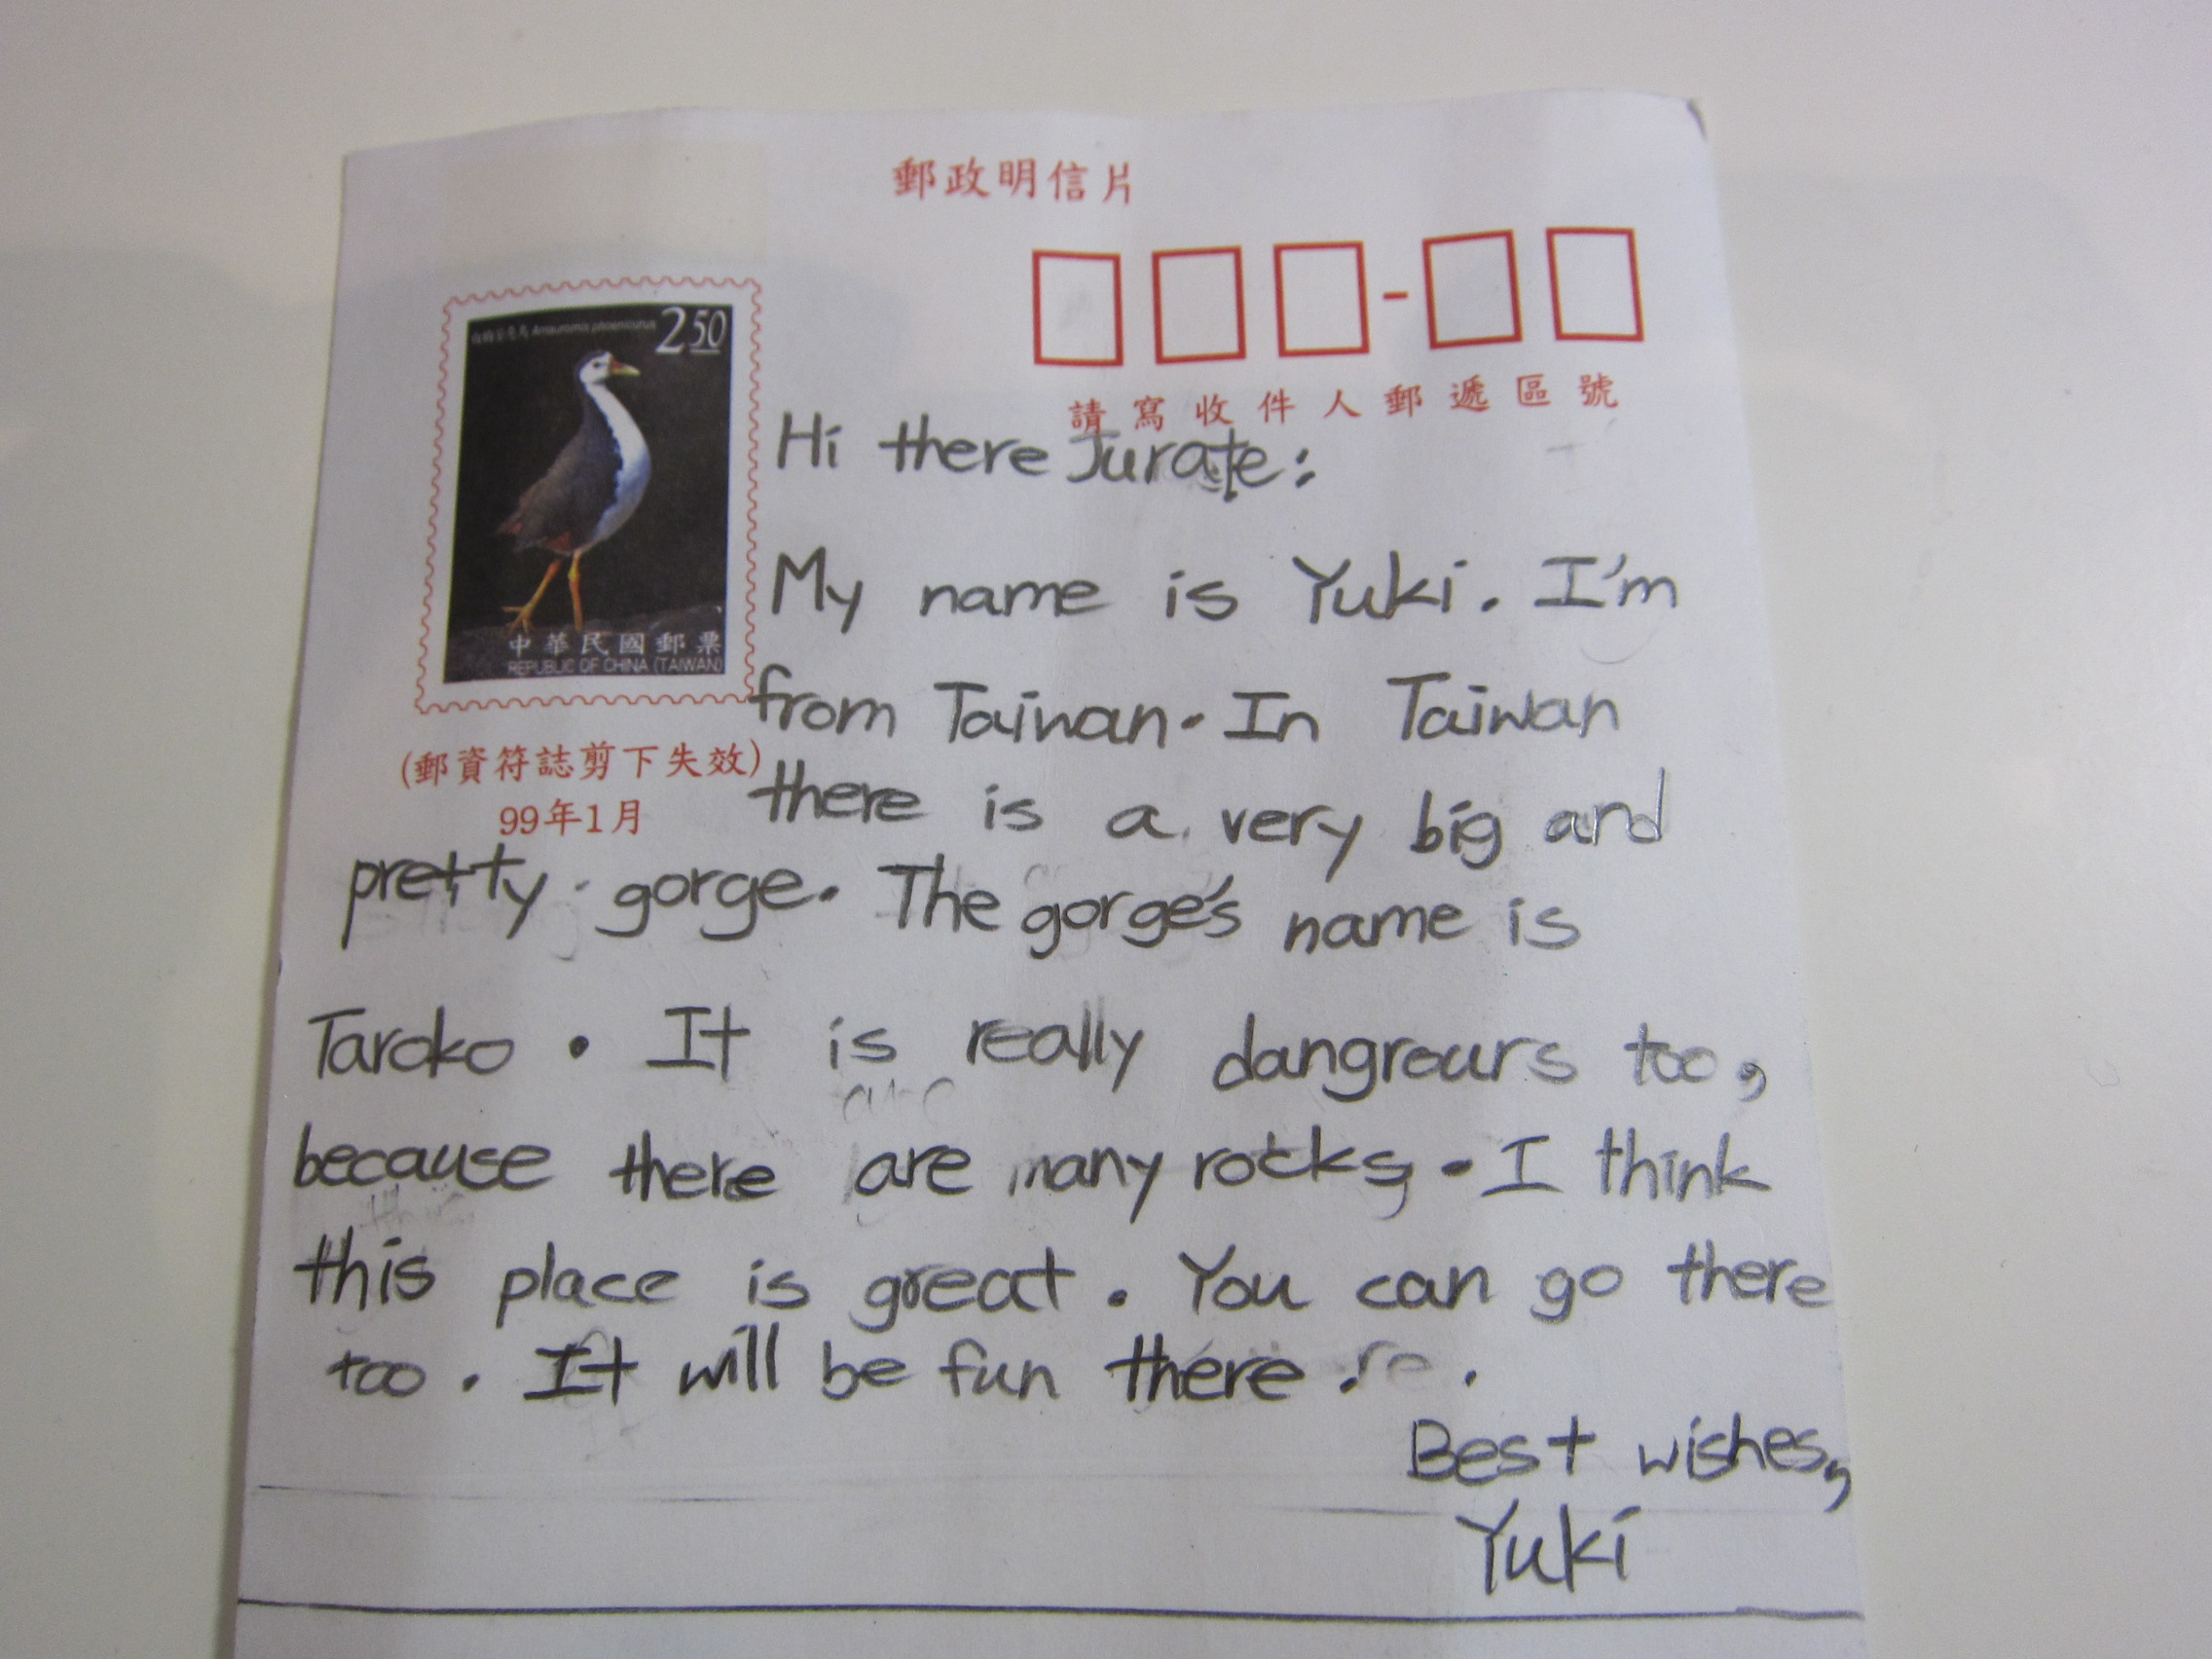 郵政明信片
2.50
Amaurornis phoenicurus
中華民國郵票
REPUBLIC OF CHINA (TAIWAN)
(郵資符誌剪下失效)
99年1月
請寫收件人郵遞區號
Hi there Jurate:
My name is Yuki. I'm
from Taiwan. In Taiwan
there is a very big and
pretty gorge. The gorge's name is
Taroko. It is really dangrours too,
because there are many rocks. I think
this place is great. You can go there
too. It will be fun there.
Best wishes,
Yuki